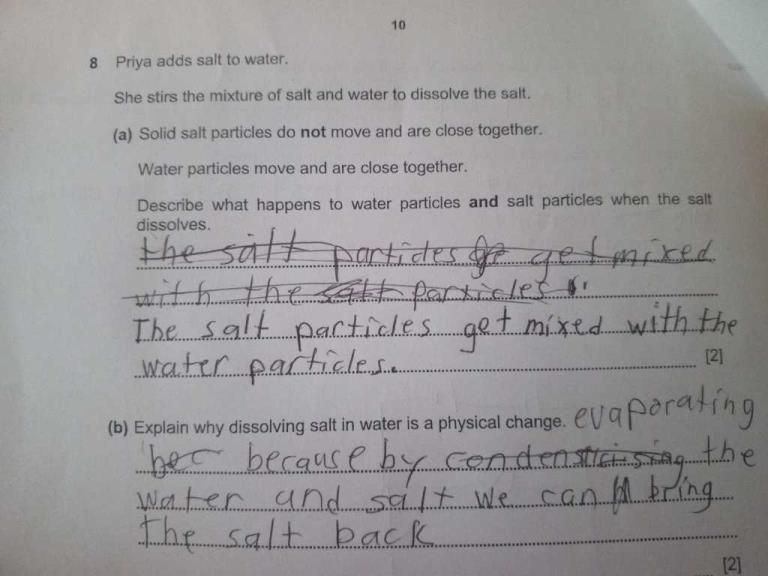 10
8 Priya adds salt to water.
She stirs the mixture of salt and water to dissolve the salt.
(a) Solid salt particles do not move and are close together.
Water particles move and are close together.
Describe what happens to water particles and salt particles when the salt
dissolves.
the salt particles get mixed
with the salt particles
The salt particles get mixed with the
water particles.
[2]
(b) Explain why dissolving salt in water is a physical change. evaporating
bec because by the
water and salt we can bring
the salt back
[2]